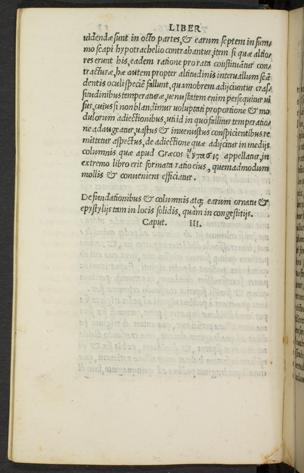 LIBER
uidendæ sunt in octo partes, & earum septem in sum
mo scapi hypotrachelio contrahantur, item si quæ altio
res erunt his, eadem ratione pro rata constituantur con
tracturæ, hæ autem propter altitudinis interuallum scã
dentis oculi speciē fallunt, quamobrem adijciuntur craſs
situdinibus temperaturæ, uenustatem enim persequitur ui
sus, cuius si non blandimur uoluptati proportione & mo
dulorum adiectionibus, uti id in quo fallitur temperatio
ne adaugeatur, uastus & inuenustus conspicientibus re
mittetur aspectus, de adiectione quæ adijcitur in medijs
columnis quæ apud Græcos ἔντασις appellatur, in
extremo libro erit formata ratio eius, quemadmodum
mollis & conueniens efficiatur.
De fundationibus & columnis atq; earum ornatu &
epystylijs tam in locis solidis, quàm in congestitijs.
Caput. III.